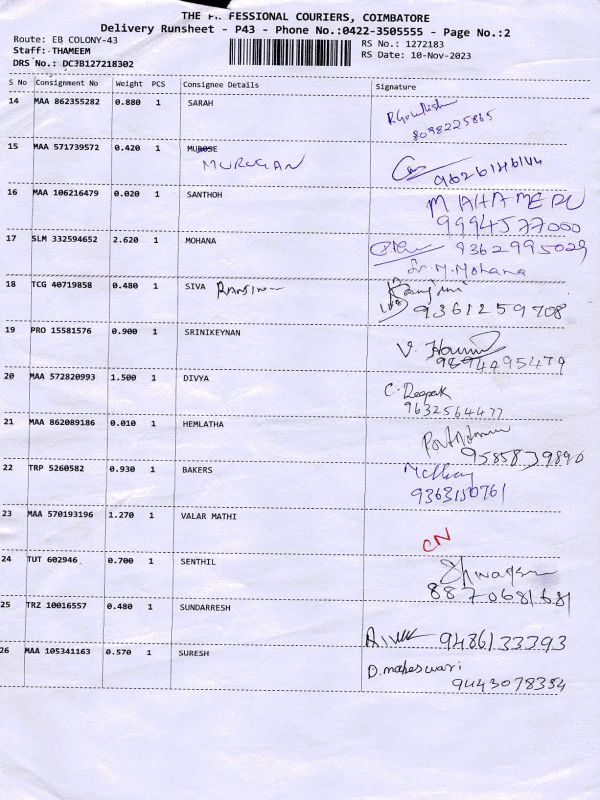 THE PR FESSIONAL COURIERS, COIMBATORE
Delivery Runsheet - P43 - Phone No.:0422-3505555 - Page No.:2
Route: EB COLONY-43
RS No.: 1272183
Staff: THAMEEM
RS Date: 10-Nov-2023
DRS No.: DC3B127218302
S No Consignment No Weight PCS Consignee Details Signature
14 MAA 862355282 0.880 1 SARAH
8098225865
15 MAA 571739572 0.420 1 MUROSE
MURUGAN
16 MAA 106216479 0.020 1 SANTHOH MAHAMERU
9994577000
17 SLM 332594652 2.620 1 MOHANA 9362995029
M.Mohana
18 TCG 40719858 0.480 1 SIVA
9361259708
19 PRO 15581576 0.900 1 SRINIKEYNAN V.
9894495479
20 MAA 572820993 1.500 1 DIVYA C. Deepak
9632564477
21 MAA 862089186 0.010 1 HEMLATHA
9585839890
22 TRP 5260582 0.930 1 BAKERS
9363150761
23 MAA 570193196 1.270 1 VALAR MATHI
CN
24 TUT 602946 0.700 1 SENTHIL
8870681681
25 TRZ 10016557 0.480 1 SUNDARRESH
9486133393
26 MAA 105341163 0.570 1 SURESH D.maheswari
9443078354